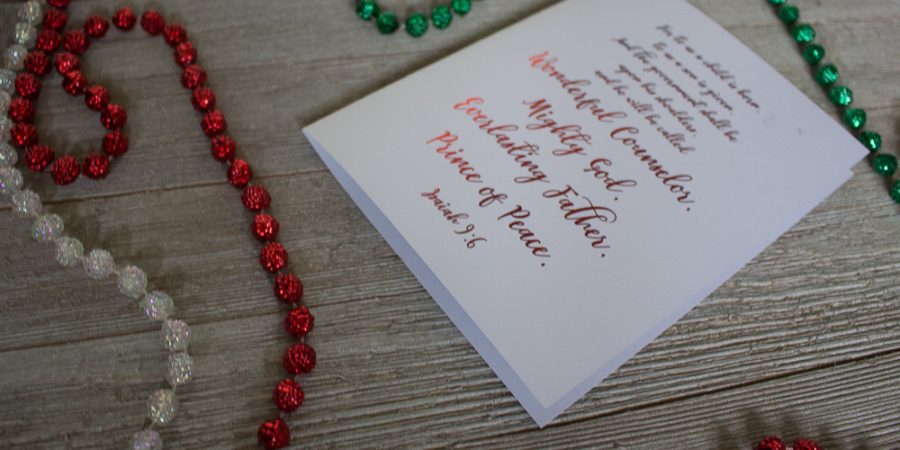 For to us a child is born,
to us a son is given,
and the government shall be
upon his shoulders,
and he will be called
Wonderful Counselor.
Mighty God.
Everlasting Father.
Prince of Peace.
Isaiah 9:6